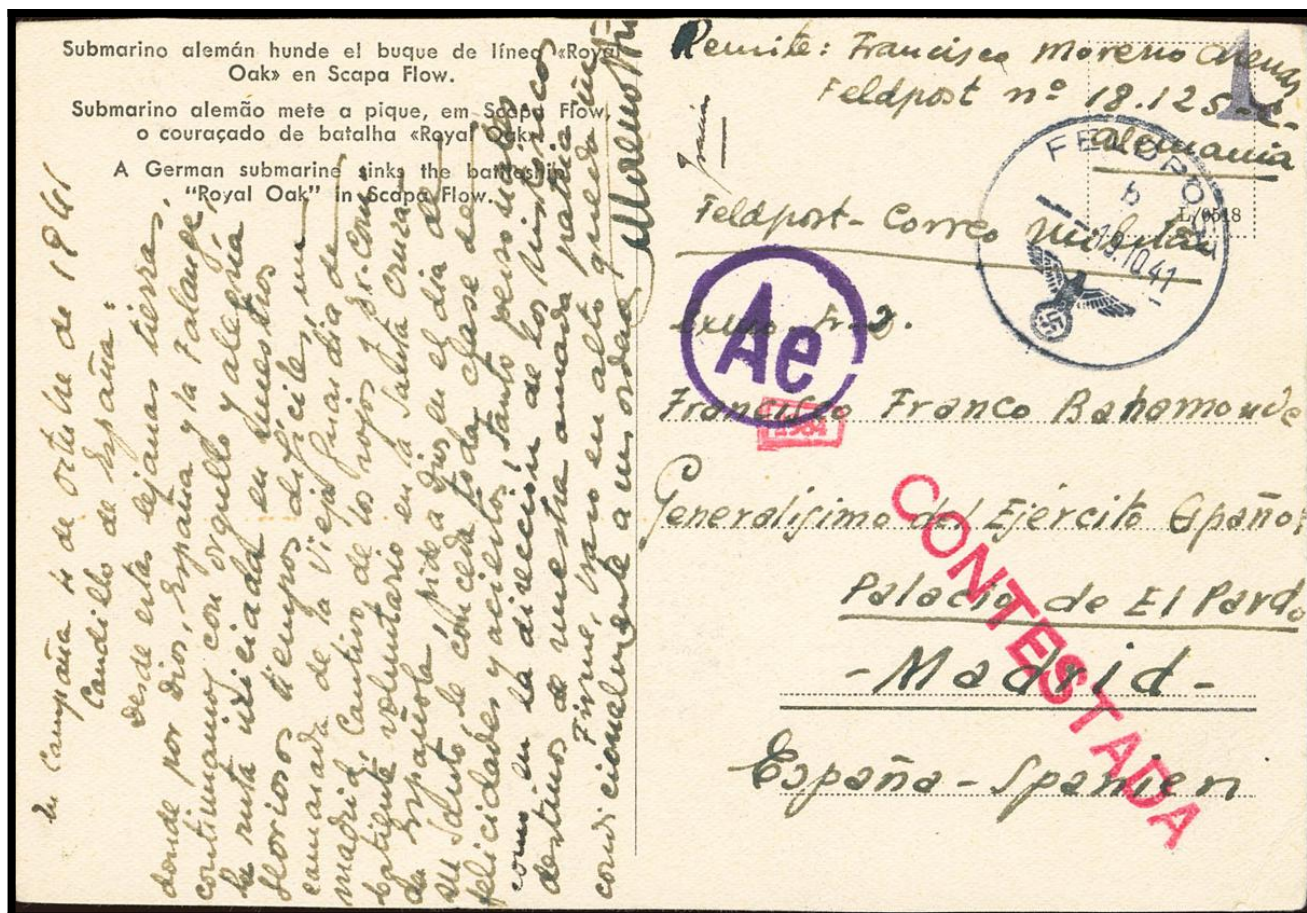 Submarino alemán hunde el buque de línea «Royal
Oak» en Scapa Flow.
Submarino alemão mete a pique, em Scapa Flow,
o couraçado de batalha «Royal Oak».
A German submarine sinks the battleship
"Royal Oak" in Scapa Flow.
En Campaña 4 de octubre de 1941
Caudillo de España:
Desde estas lejanas tierras,
donde por Dios, España y la Falange,
continuamos con orgullo y alegría
la ruta iniciada en nuestros
gloriosos tiempos difíciles, un
camarada de la Vieja Guardia de
Madrid, Cautivo de los rojos y
combatiente voluntario en la Santa Cruzada
Española pide a Dios en el día de
su Santo le conceda toda clase de
felicidades y aciertos, tanto personales
como en la dirección de los históricos
destinos de nuestra amada patria.
Firme, brazo en alto quedo
incondicionalmente a sus ordenes,
Remite: Francisco Moreno Arenas
Feldpost nº 18.125-
Alemania
FELDPOST
b
10.41
L/0518
Feldpost - Correo Militar
Ae
Francisco Franco Bahamonde
Generalisimo del Ejército Español
Palacio de El Pardo
- Madrid -
España - Spanien
CONTESTADA